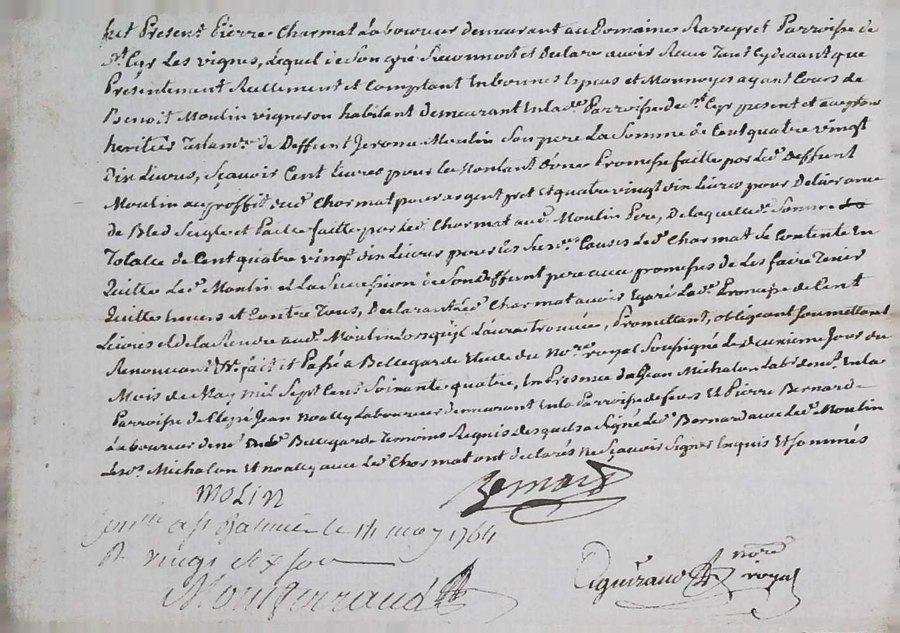 fut Present Pierre Charmat Laboureur demeurant au Domaine Raveyret Parroisse de
St Cyr Les vignes, Lequel de Son gré a reconnod et declare avoir Receu Tant Cydevant que
Présentement Reellement et Comptant En bonnes Especes et Monnoyes ayant Cours de
Benoit Moulin vigneron habitant demeurant En lad. Parroisse de St Cyr present et acceptant
heritier Testamre de Deffunt Jerome Moulin Son pere La Somme de Cent quatre vingt
Dix Livres, Sçavoir Cent Livres pour le Montant d'une Promesse faitte par led. Deffunt
Moulin au proffit dud. Charmat pour argent pret Et quatre vingt dix Livres pour Délivrance
de Bled Seigle et Paille faitte par led. Charmat aud. Moulin Pere, De laquelle Somme
Totalle de Cent quatre vingt dix Livres pour les Susd. Causes led. Charmat Se Contente En
Quitte led. Moulin et La Succession de Son deffunt pere avec promesses de Les faire Tenir
Quittes Envers et Contre Tous, Declarant led. Charmat avoir Egaré Lad. Promesse de Cent
Livres et de La Rendre aud. Moulin Lorsqu'il L'aura Trouvée, Promettant, obligeant Soumettant
Renonçant &c. fait et Passé a Bellegarde Etude du Nore royal Soussigné Le deuxieme Jour du
Mois de May Mil Sept Cent Soixante quatre, En Presence de Jean Michalon Labr demt En la
Parroisse de Jean Noally Laboureur demeurant En la Parroisse de feurs Et Pierre Bernard
Laboureur demt Bellegarde Temoins Requis desquels a Signé led. Bernard avec led. Moulin
Lesd. Michalon Et Noally avec led. Charmat ont declarés Ne Sçavoir Signer Enquis Et Sommés
MOLIN
Bernard
a St Galmier le 14 may 1764
R vingt six sou
Eguiraud nore
royal
Montserraud